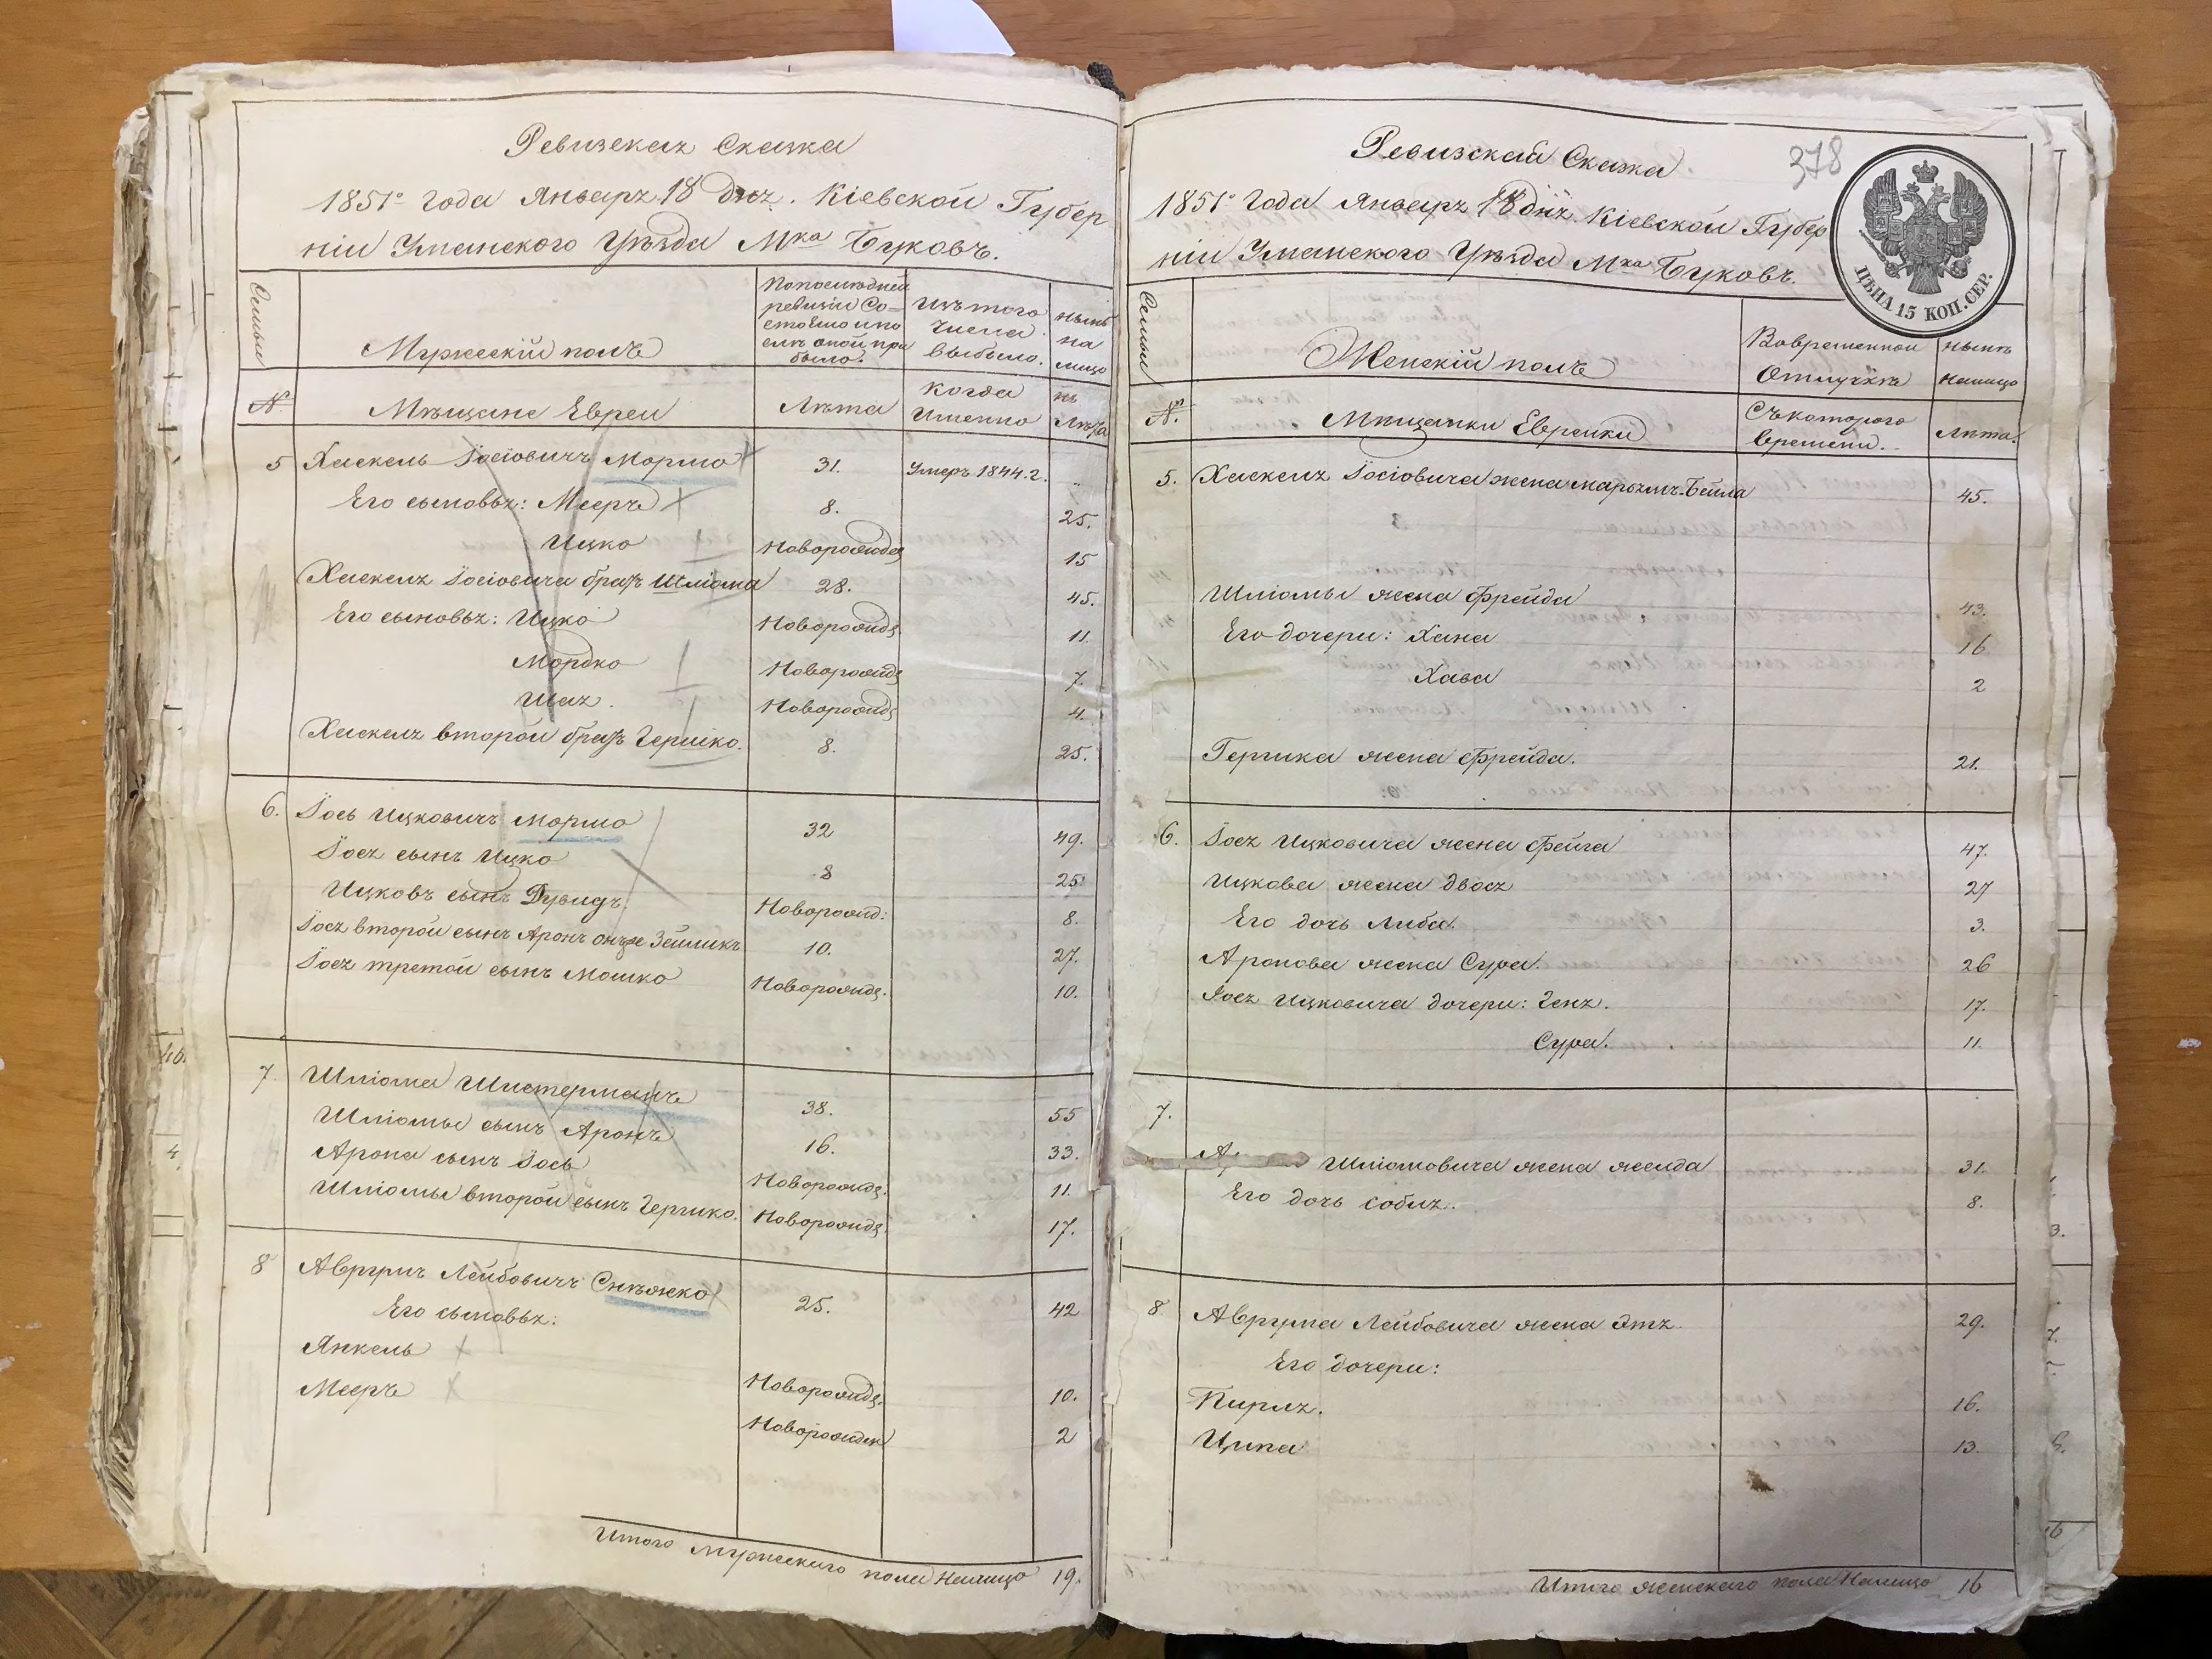 Ревизская Сказка
1851го года Января 18 дня. Кіевской Губер
ніи Уманского Уѣзда Мка Буковъ.
Семьи
Мужескій полъ
По последней
ревизіи Со=
стояло и по
слѣ оной при
было.
Изъ того
числа
выбыло.
нынѣ
на
лицо
№
Мѣщане Евреи
Лѣта
когда
именно
Лѣта
5 Хаскель Іосіовичъ Мормо 31. Умеръ 1844. г. ..
Его сыновья: Мееръ 8. 25.
Ицко Новорожде 15
Хаскеля Іосіовича братъ Шліома 28. 45.
Его сыновья: Ицко Новорожд 11.
Мордко Новорожд 7.
Шая. Новорожд 4.
Хаскеля второй братъ Гершко. 8. 25.
6. Іось Ицковичъ Мормо 32 49.
Іося сынъ Ицко 8 25.
Ицковъ сынъ Дувидъ Новорожд: 8.
Іося второй сынъ Аронъ онъже Зейликъ 10. 27.
Іося третой сынъ Мошко Новорожд. 10.
7. Шліома Шистерманъ 38. 55
Шліомы сынъ Аронъ 16. 33.
Арона сынъ Іось Новорожд. 11.
Шліомы второй сынъ Гершко. Новорожд. 17.
8 Аврумъ Лейбовичъ Снѣжко 25. 42
Его сыновья:
Янкель Новорожд. 10.
Мееръ Новорожден 2
Итого мужескаго пола Налицо 19.
Ревизская Сказка
378
1851го года Января 18 дня Кіевской Губер
ніи Уманского Уѣзда Мка Буковъ.
ЦѢНА 15 КОП. СЕР.
Семьи
Женскій полъ
Вовременной
Отлучкѣ
нынѣ
налицо
№
Мѣщанки Еврейки
Съ которого
времени.
Лѣта.
5. Хаскеля Іосіовича жена Бейла 45.
Шліомы жена Фрейда 43.
Его дочери: Хана 16
Хава 2
Гершка жена Фрейда. 21.
6. Іося Ицковича жена Фейга 47.
Ицкова жена Двося 27
Его дочь Либа. 3.
Аронова жена Сура. 26
Іося Ицковича дочери: Геня. 17.
Сура. 11.
7.
Шліомовича жена женда 31.
Его дочь собля. 8.
8 Аврума Лейбовича жена Этя. 29.
Его дочери:
Пирля. 16.
Ципа 13.
Итого женскаго пола Налицо 16